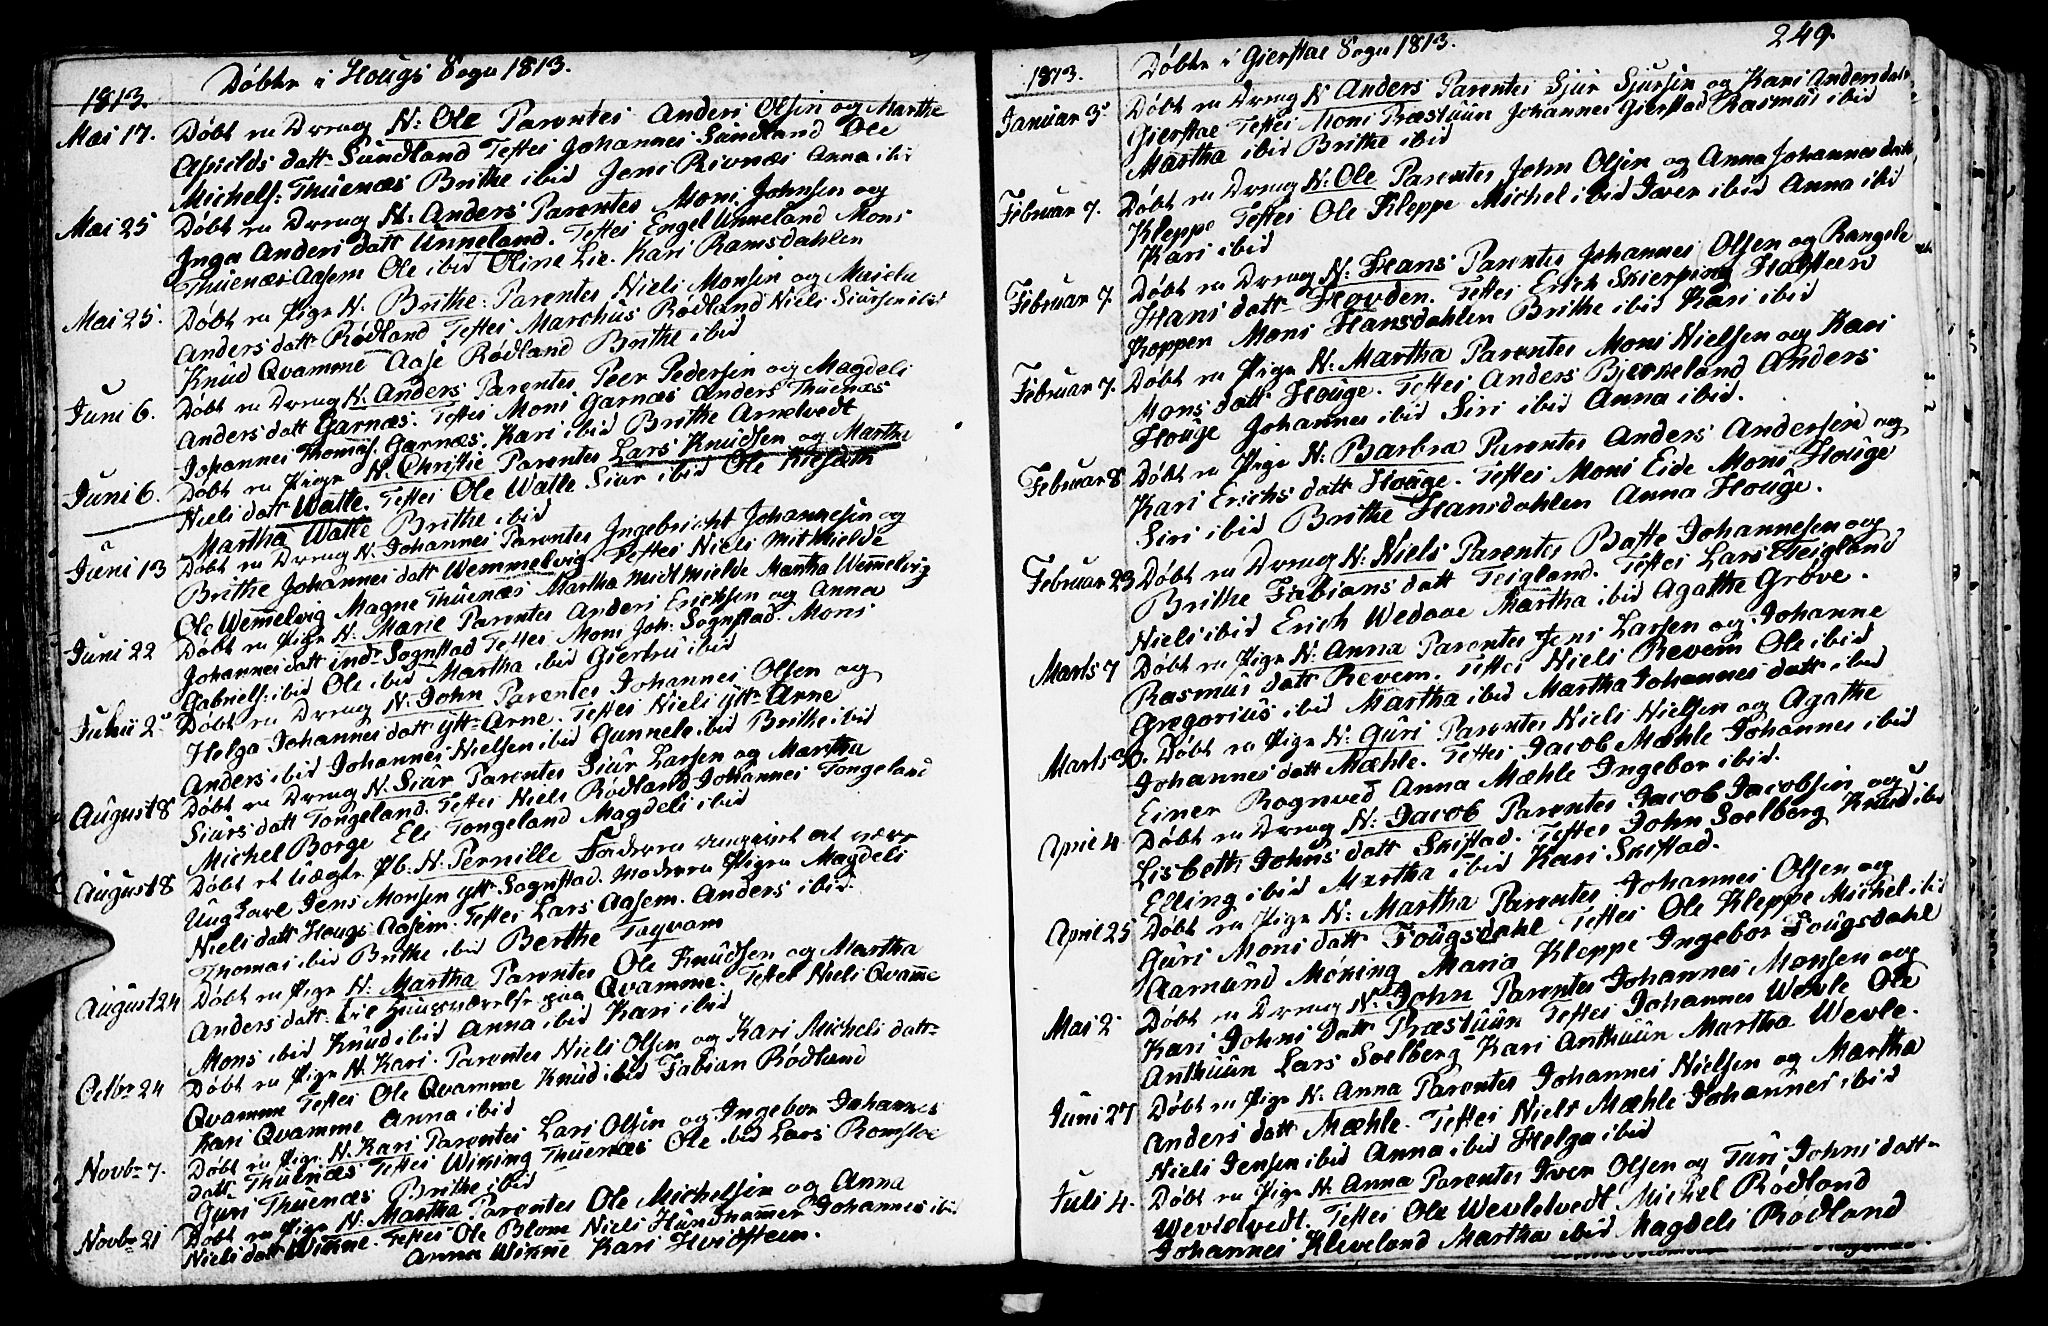 Døbte i Hougs Sogn 1813.
1813.
Mai 17. Døbt en Dreng N: Ole Parentes Anders Olsen og Marthe
Asields datt. Sundland Testes Johannes Sundland Ole
Michels: Thuenæs Brithe ibid Jens Rivenæs Anna ibid
Mai 25 Døbt en Dreng N: Anders Parentes Mons Johnsen og
Inga Anders datt Unneland. Testes Engel Unneland Mons
Thuenæs Aasem Ole ibid Oline Lie Kari Ramsdahlen
Mai 25. Døbt en Pige N. Brithe: Parentes Niels Monsen og Maiela
Anders datt Rødland Testes Marchus Rødland Niels Siursen ibid
Knud Qvamme Aase Rødland Brithe ibid
Juni 6. Døbt en Dreng N. Anders Parentes Peer Pedersen og Magdeli
Anders datt Garnæs. Testes Mons Garnæs Anders Thuenæs
Johannes Thomas. Garnæs. Kari ibid Brithe Arnetvedt
Juni 6. Døbt en Pige N. Christie Parentes Lars Knudsen og Marthe
Niels datt Watle. Testes Ole Watle Siur ibid Ole
Martha Watle Brithe ibid
Juni 13 Døbt en Dreng N. Johannes Parentes Ingebricht Johannesen og
Brithe Johannes datt Wemmelvig Testes Niels Mitmielde
Ole Wemelvig Magne Thuenæs Martha Midtmielde Martha Wemelvig
Juni 22 Døbt en Pige N. Marie Parentes Anders Ericksen og Anna
Johannes datt indr Sognstad Testes Mons Joh: Sognstad. Mons
Gabriels: ibid Ole ibid Martha ibid Giertru ibid
Julii 2. Døbt en Dreng N. John Parentes Johannes Olsen og
Helga Johannes datt ytt-Arne. Testes Niels ytt-Arne
Anders ibid Johannes Nielsen ibid Gunnele ibid Brithe ibid
August 8 Døbt en Dreng N. Siur Parentes Siur Larsen og Martha
Siurs datt Tongeland. Testes Niels Rødland Johannes Tongeland
Michel Borge Eli Tongeland Magdeli ibid
August 8 Døbt et Uægte Pb. N: Pernille Faderen angivet at være
Ungkarl Jens Monsen ytt Sognstad. Moderen Pigen Magdeli
Niels datt Hougs Aasem. Testes Lars Aasem. Anders ibid.
Thomas ibid Brithe ibid Berthe Taqvam
August 24 Døbt en Pige N. Martha Parentes Ole Knudsen og Martha
Anders datt: Lie Huusværelse paa Qvamme. Testes Niels Qvamme
Mons ibid Knud ibid Anna ibid Kari ibid
Octbr 24 Døbt en Pige N. Kari. Parentes Niels Olsen og Kari Michels datt-
Qvamme Testes Ole Qvamme Knud ibid Fabian Rødland
Kari Qvamme Anna ibid
Novbr 7. Døbt en Pige N. Kari Parentes Lars Olsen og Ingebor Johannes
datt Thuenæs Testes Wiking Thuenæs Ole ibid Lars Romsloe
Guri Thuenæs Brithe ibid
Novbr 21 Døbt en Pige N: Martha Parentes Ole Michelsen og Anna
Niels datt Wikne. Testes Ole Blom Niels Hundhammer Johannes ibid
Anna Wikne Kari Hvidsteen.
249.
Døbte i Gierstae Sogn 1813.
1813.
Januar 3. Døbt en Dreng N: Anders Parentes Sjur Sjursen og Kari Anders datt
Gierstae Testes Mons Præstuun Johannes Gierstad Rasmus ibid
Martha ibid Brithe ibid
Februar 7. Døbt en Dreng N: Ole Parentes John Olsen og Anna Johannes datt
Kleppe Testes Ole Kleppe Michel ibid Iver ibid Anna ibid
Kari ibid
Februar 7. Døbt en Dreng N: Hans Parentes Johannes Olsen og Rangele
Hans datt- Hovden. Testes Erich Skierping Halsteen
Koppen Mons Hansdahlen Brithe ibid Kari ibid
Februar 7. Døbt en Pige N: Martha Parentes Mons Nielsen og Kari
Mons datt Houge. Testes Anders Bjerkeland Anders
Houge Johannes ibid Siri ibid Anna ibid.
Februar 8 Døbt en Pige N: Barbra Parentes Anders Andersen og
Kari Erichs datt Houge. Testes Mons Eide Mons Houge
Siri ibid Brithe Hansdahlen Anna Houge.
Februar 23 Døbt en Dreng N: Niels Parentes Baste Johannesen og
Brithe Fabians datt Teigland. Testes Lars Teigland
Niels ibid Erich Wedaae Martha ibid Agathe Grøve.
Marts 7 Døbt en Pige N: Anna Parentes Jens Larsen og Johanne
Rasmus datt Revem. Testes Niels Revem Ole ibid
Gregorius ibid Martha ibid Martha Johannes datt ibid
Marts 30. Døbt en Pige N: Guri Parentes Niels Nielsen og Agathe
Johannes datt Mæhle. Testes Jacob Mæhle Johannes ibid
Einer Rognved Anna Mæhle Ingebor ibid.
April 4 Døbt en Dreng N: Jacob Parentes Jacob Jacobsen og
Lisbeth Johns datt Skistad. Testes John Soelberg Knud ibid
Elling ibid Martha ibid Kari Skistad.
April 25 Døbt en Pige N: Martha Parentes Johannes Olsen og
Guri Mons datt Fougsdahl Testes Ole Kleppe Michel ibid
Aamund Møking Maria Kleppe Ingebor Fougsdahl
Mai 2 Døbt en Dreng N: John Parentes Johannes Monsen og
Kari Johns datt Præstuun Testes Johannes Wevle Ole
Anthuun Lars Soelberg Kari Anthuun Martha Wevle.
Juni 27 Døbt en Pige N: Anna Parentes Johannes Nielsen og Martha
Anders datt Mæhle. Testes Niels Mæhle Johannes ibid
Niels Jensen ibid Anna ibid Helga ibid
Juli 4. Døbt en Pige N: Anna Parentes Iver Olsen og Turi Johns datt-
Wevletvedt. Testes Ole Wevletvedt Michel Rødland
Johannes Kleveland Martha ibid Magdeli Rødland